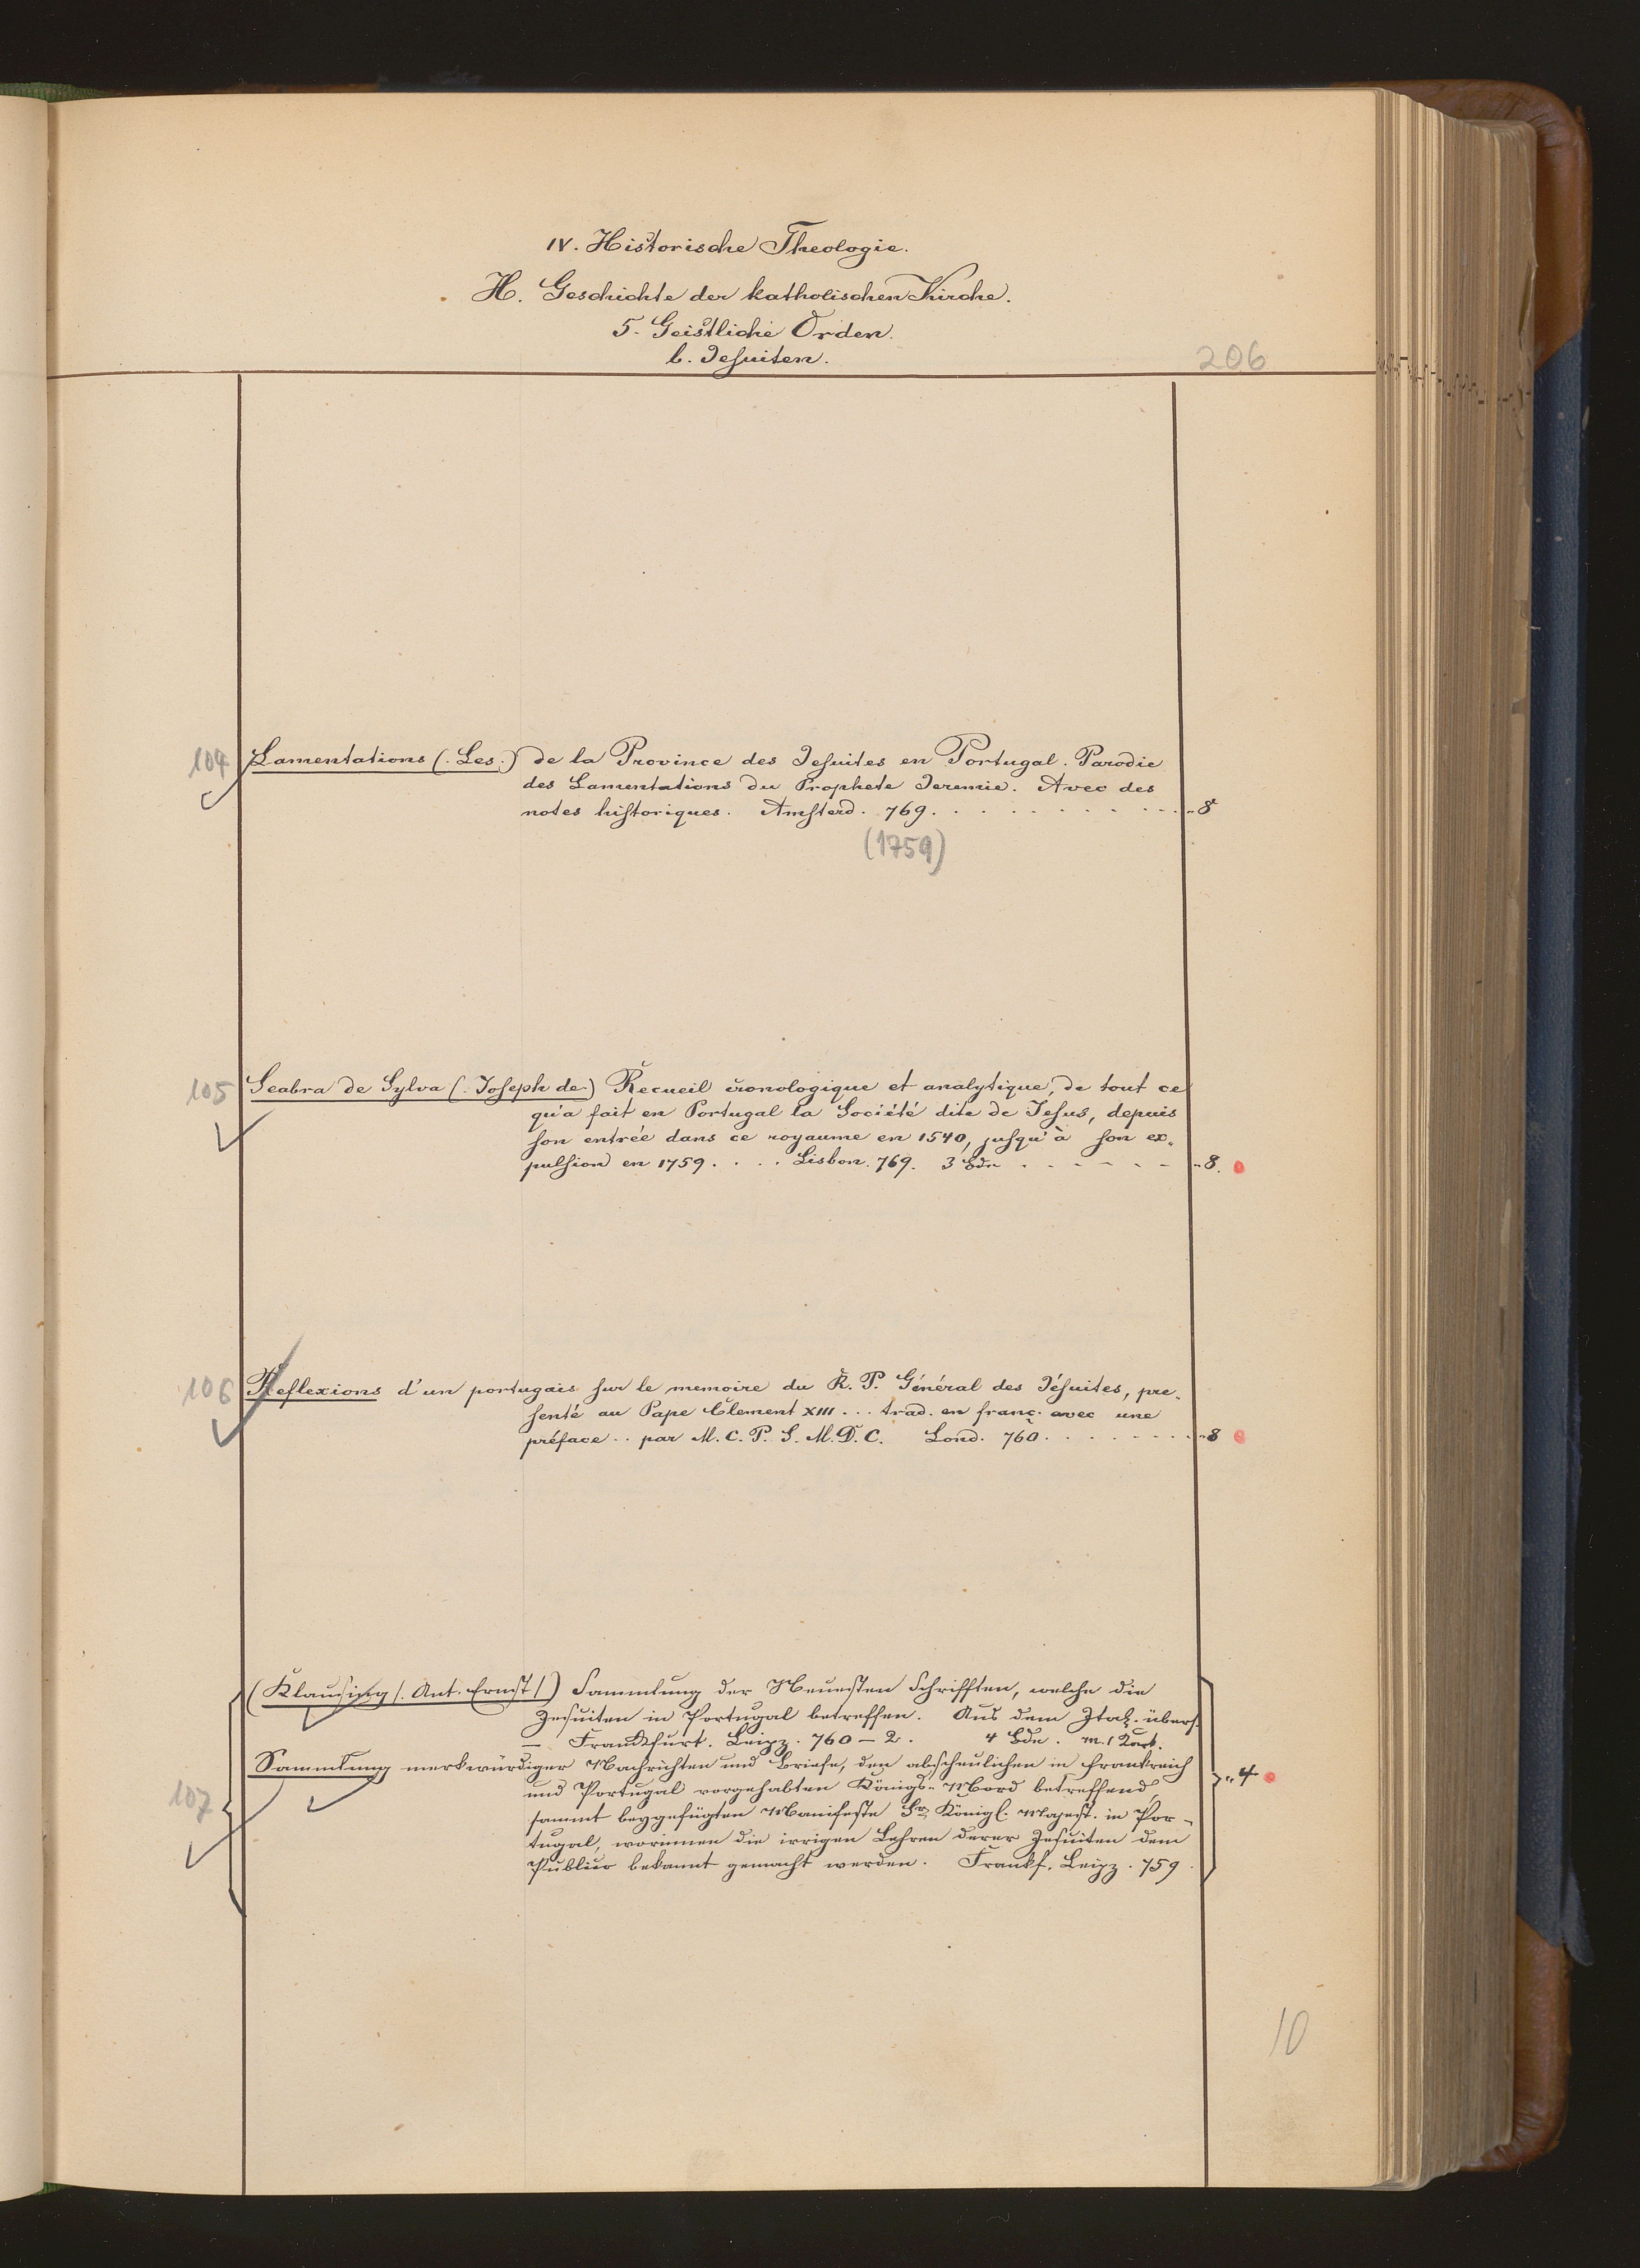 IV. Historische Theologie.
H. Geschichte der katholischen Kirche.
5. Geistliche Orden.
b. Jesuiten.
206
104 Lamentations (. Les.) de la Province des Jesuites en Portugal. Parodie
des Lamentations du Prophete Jeremie. Avec des
notes historiques. Amsterd. 769. . . . . . . . . . . "8
(1759)
105 Seabra de Sylva (. Joseph de.) Recueil cronologique et analytique, de tout ce
qu'a fait en Portugal la Société dite de Jesus, depuis
son entrée dans ce royaume en 1540, jusqu'à son ex-
pulsion en 1759. . . . Lisbon. 769. 3 Bde . . - - - . - "8.
106 Reflexions d'un portugais sur le memoire du R. P. Général des Jésuites, pre-
senté au Pape Clement XIII . . . trad. en franç. avec une
préface . . par M. C. P. S. M. D. C. Lond. 760. . . . . . . . . "8
(Klausing /. Ant. Ernst /) Sammlung der Neuesten Schrifften, welche die
Jesuiten in Portugal betreffen. Aus dem Ital. übers.
— Franckfurt. Leipz. 760 – 2. 4 Bde. m. 1 Kart.
Sammlung merkwürdiger Nachrichten und Briefe, den abscheulichen in Frankreich
und Portugal vorgehabten Königs-Mord betreffend, "4
107 sammt beygefügten Manifeste Sr. Königl. Majest. in Por-
tugal, worinnen die irrigen Lehren derer Jesuiten dem
Publico bekannt gemacht werden. Frankf. Leipz. 759.
10